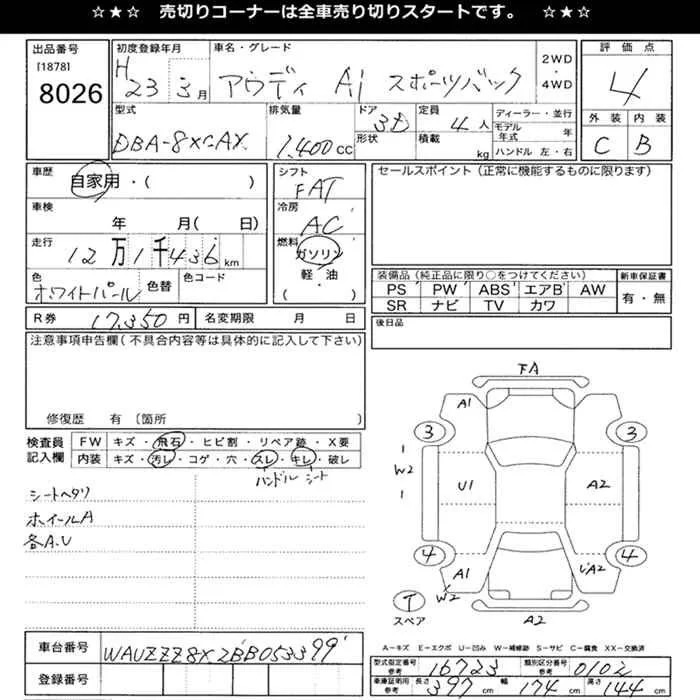 ☆★☆ 売切りコーナーは全車売り切りスタートです。 ☆★☆
出品番号
[1878]
8026
初度登録年月
H
23 3月
車名・グレード
アウディ A1 スポーツバック
2WD
・
4WD
評価点
4
外装 内装
C B
型式
DBA-8XCAX
排気量
1,400cc
ドア 3D
形状
定員 4人
積載 kg
ディーラー・並行
モデル年式 年
ハンドル 左・右
車歴
自家用・( )
車検
年 月( 日)
走行
12万1千436km
色
ホワイトパール
色替
色コード
シフト
FAT
冷房
AC
燃料
ガソリン
軽・油
・( )
セールスポイント(正常に機能するものに限ります)
装備品(純正品に限り○をつけてください)
PS PW ABS エアB AW
SR ナビ TV カワ
新車保証書
有・無
R券 17,350円
名変期限 月 日
後日品
注意事項申告欄(不具合内容等は具体的に記入して下さい)
修復歴 有 〔箇所 〕
検査員記入欄
FW キズ・飛石・ヒビ割・リペア跡・X要
内装 キズ・汚レ・コゲ・穴・スレ・キレ・破レ
ハンドル シート
シートヘタリ
ホイールA
各A.U
FA
A1
3 3
W2
U1 A2
4 4
A1 UA2
W2
T
スペア
A2
A-キズ E-エクボ U-凹み W-補修跡 S-サビ C-腐食 XX-交換済
車台番号 WAUZZZ8X2BB053399
登録番号
型式指定番号 参考 16723
類別区分番号 参考 0102
車庫証明用 参考 長さ 397cm 幅 174cm 高さ 144cm